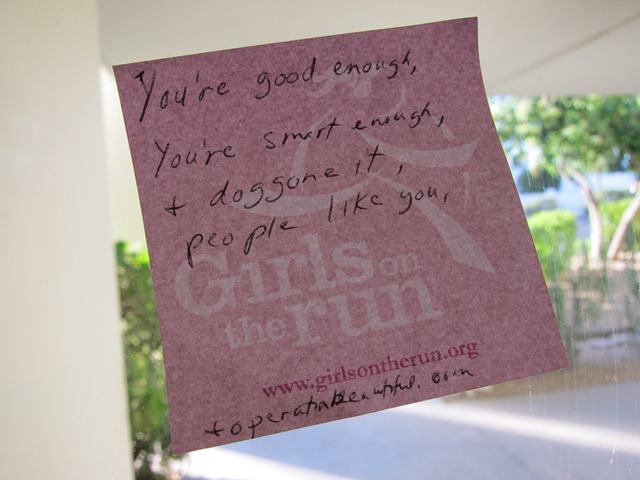 You're good enough,
You're smart enough,
+ doggone it,
people like you,
Girls on
the run
www.girlsontherun.org
+operationbeautiful.com